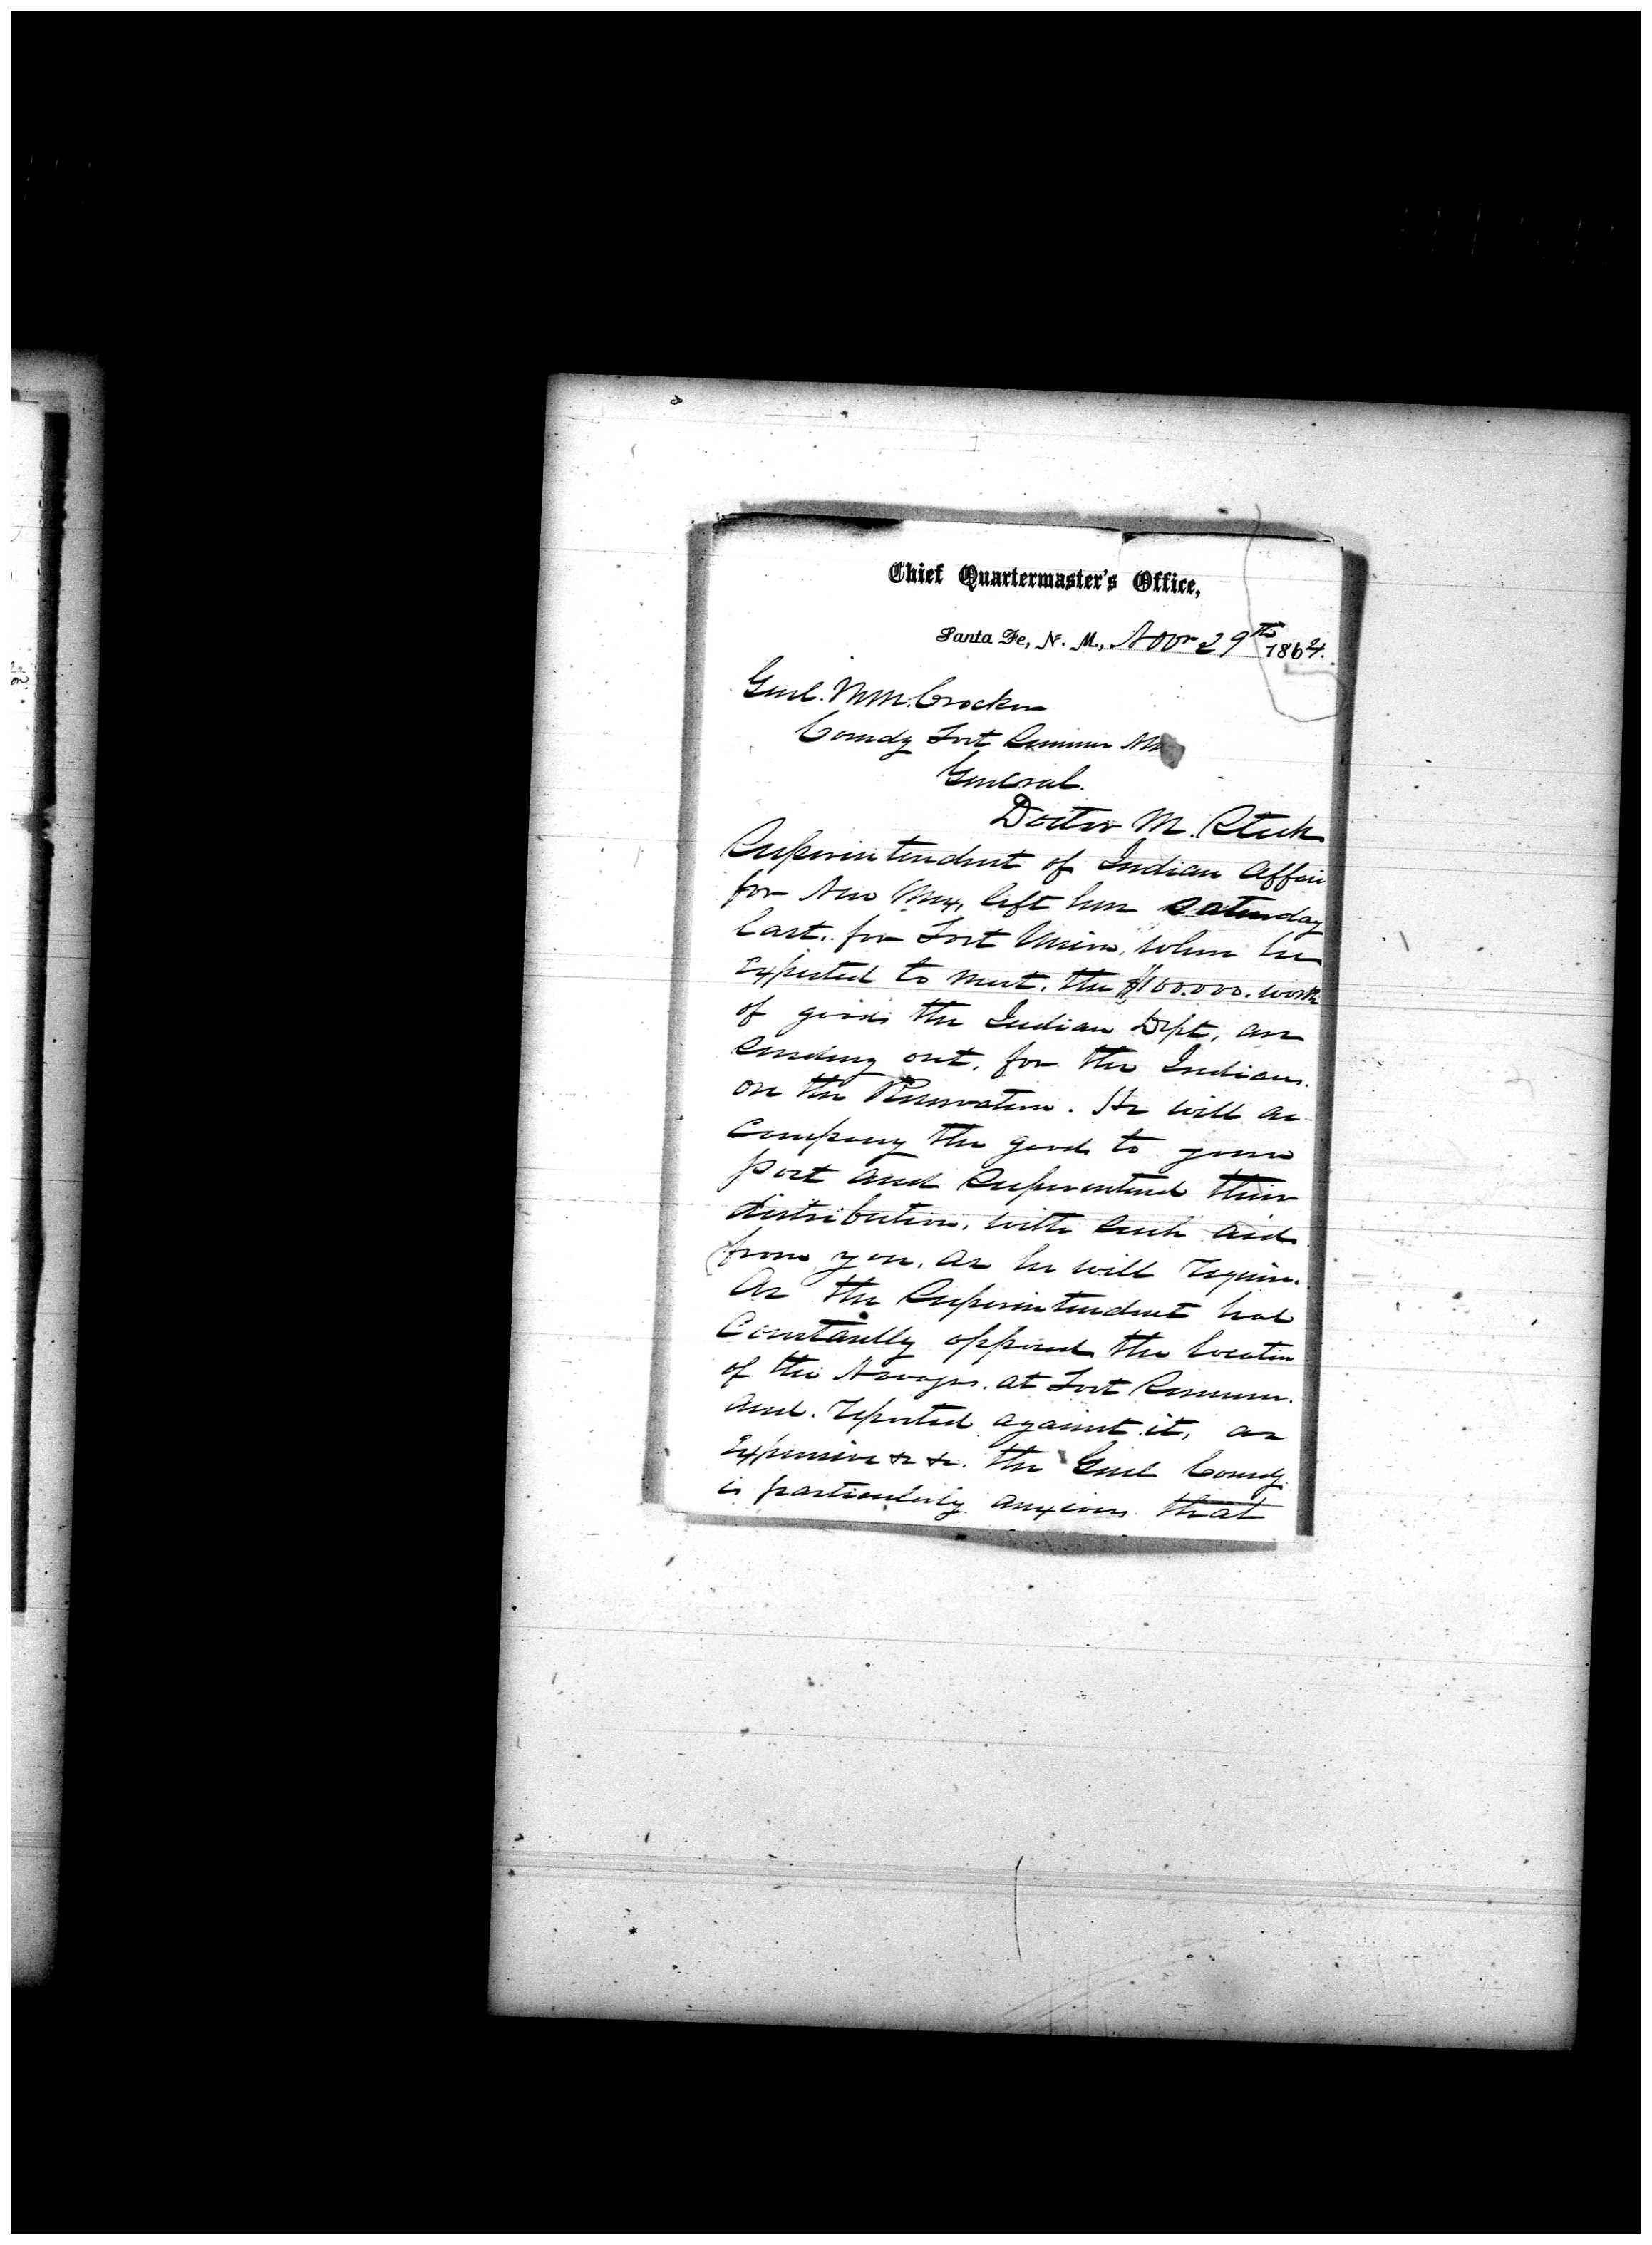 Chief Quartermaster's Office,
Santa Fe, N. M., Novr 29th 1864.
Genl. M.M. Crocker
Comdg Fort Sumner NM
General.
Doctor M. Steck
Superintendent of Indian Affair
for New Mex, left here Saturday
last, for Fort Union, where he
expected to meet, the $100.000. worth
of goods the Indian Dept, are
sending out, for the Indians.
on the Reservation. He will ac
company the goods to your
post and Superentend their
distribution, with such aid
from you, as he will require.
As the Superintendent has
Constantly opposed the location
of the Navajos. at Fort Sumner.
and. reported against it, as
Expensive &c &c. the Genl Comdg
is particularly anxious that